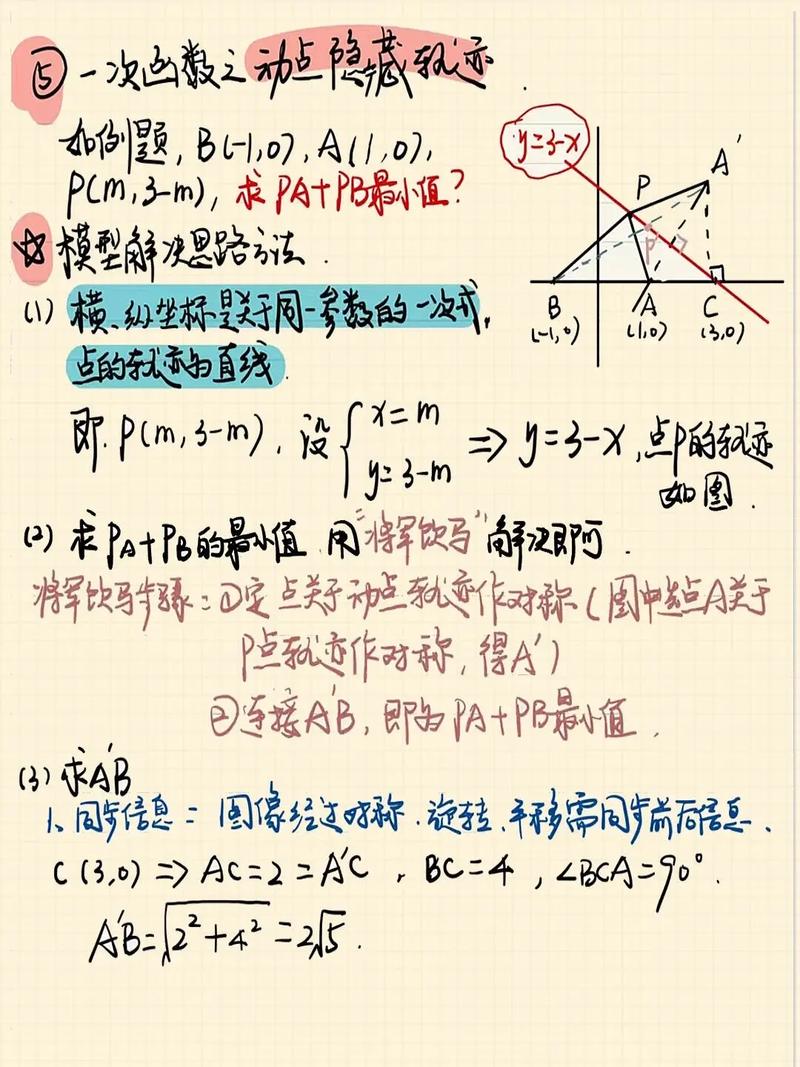 ⑤一次函数之动点隐藏轨迹
如例题, B(-1,0), A(1,0),
P(m,3-m), 求PA+PB最小值?
☆模型解决思路方法.
(1) 横、纵坐标是关于同一参数的一次式,
点的轨迹为直线.
即. P(m,3-m), 设 { x=m y=3-m ⇒ y=3-x, 点P的轨迹
如图.
(2) 求PA+PB的最小值 用"将军饮马"解决即可.
将军饮马步骤: ①定点关于动点轨迹作对称(图中选点A关于
P点轨迹作对称, 得A')
②连接A'B, 即为PA+PB最小值.
(3) 求A'B
1、同步信息: 图像经过对称、旋转、平移需同步前后信息.
C(3,0) ⇒ AC=2=A'C, BC=4, ∠BCA=90°.
A'B=√2²+4²=2√5.
y=3-x
A'
P
P
B
A
C
(-1,0)
(1,0)
(3,0)